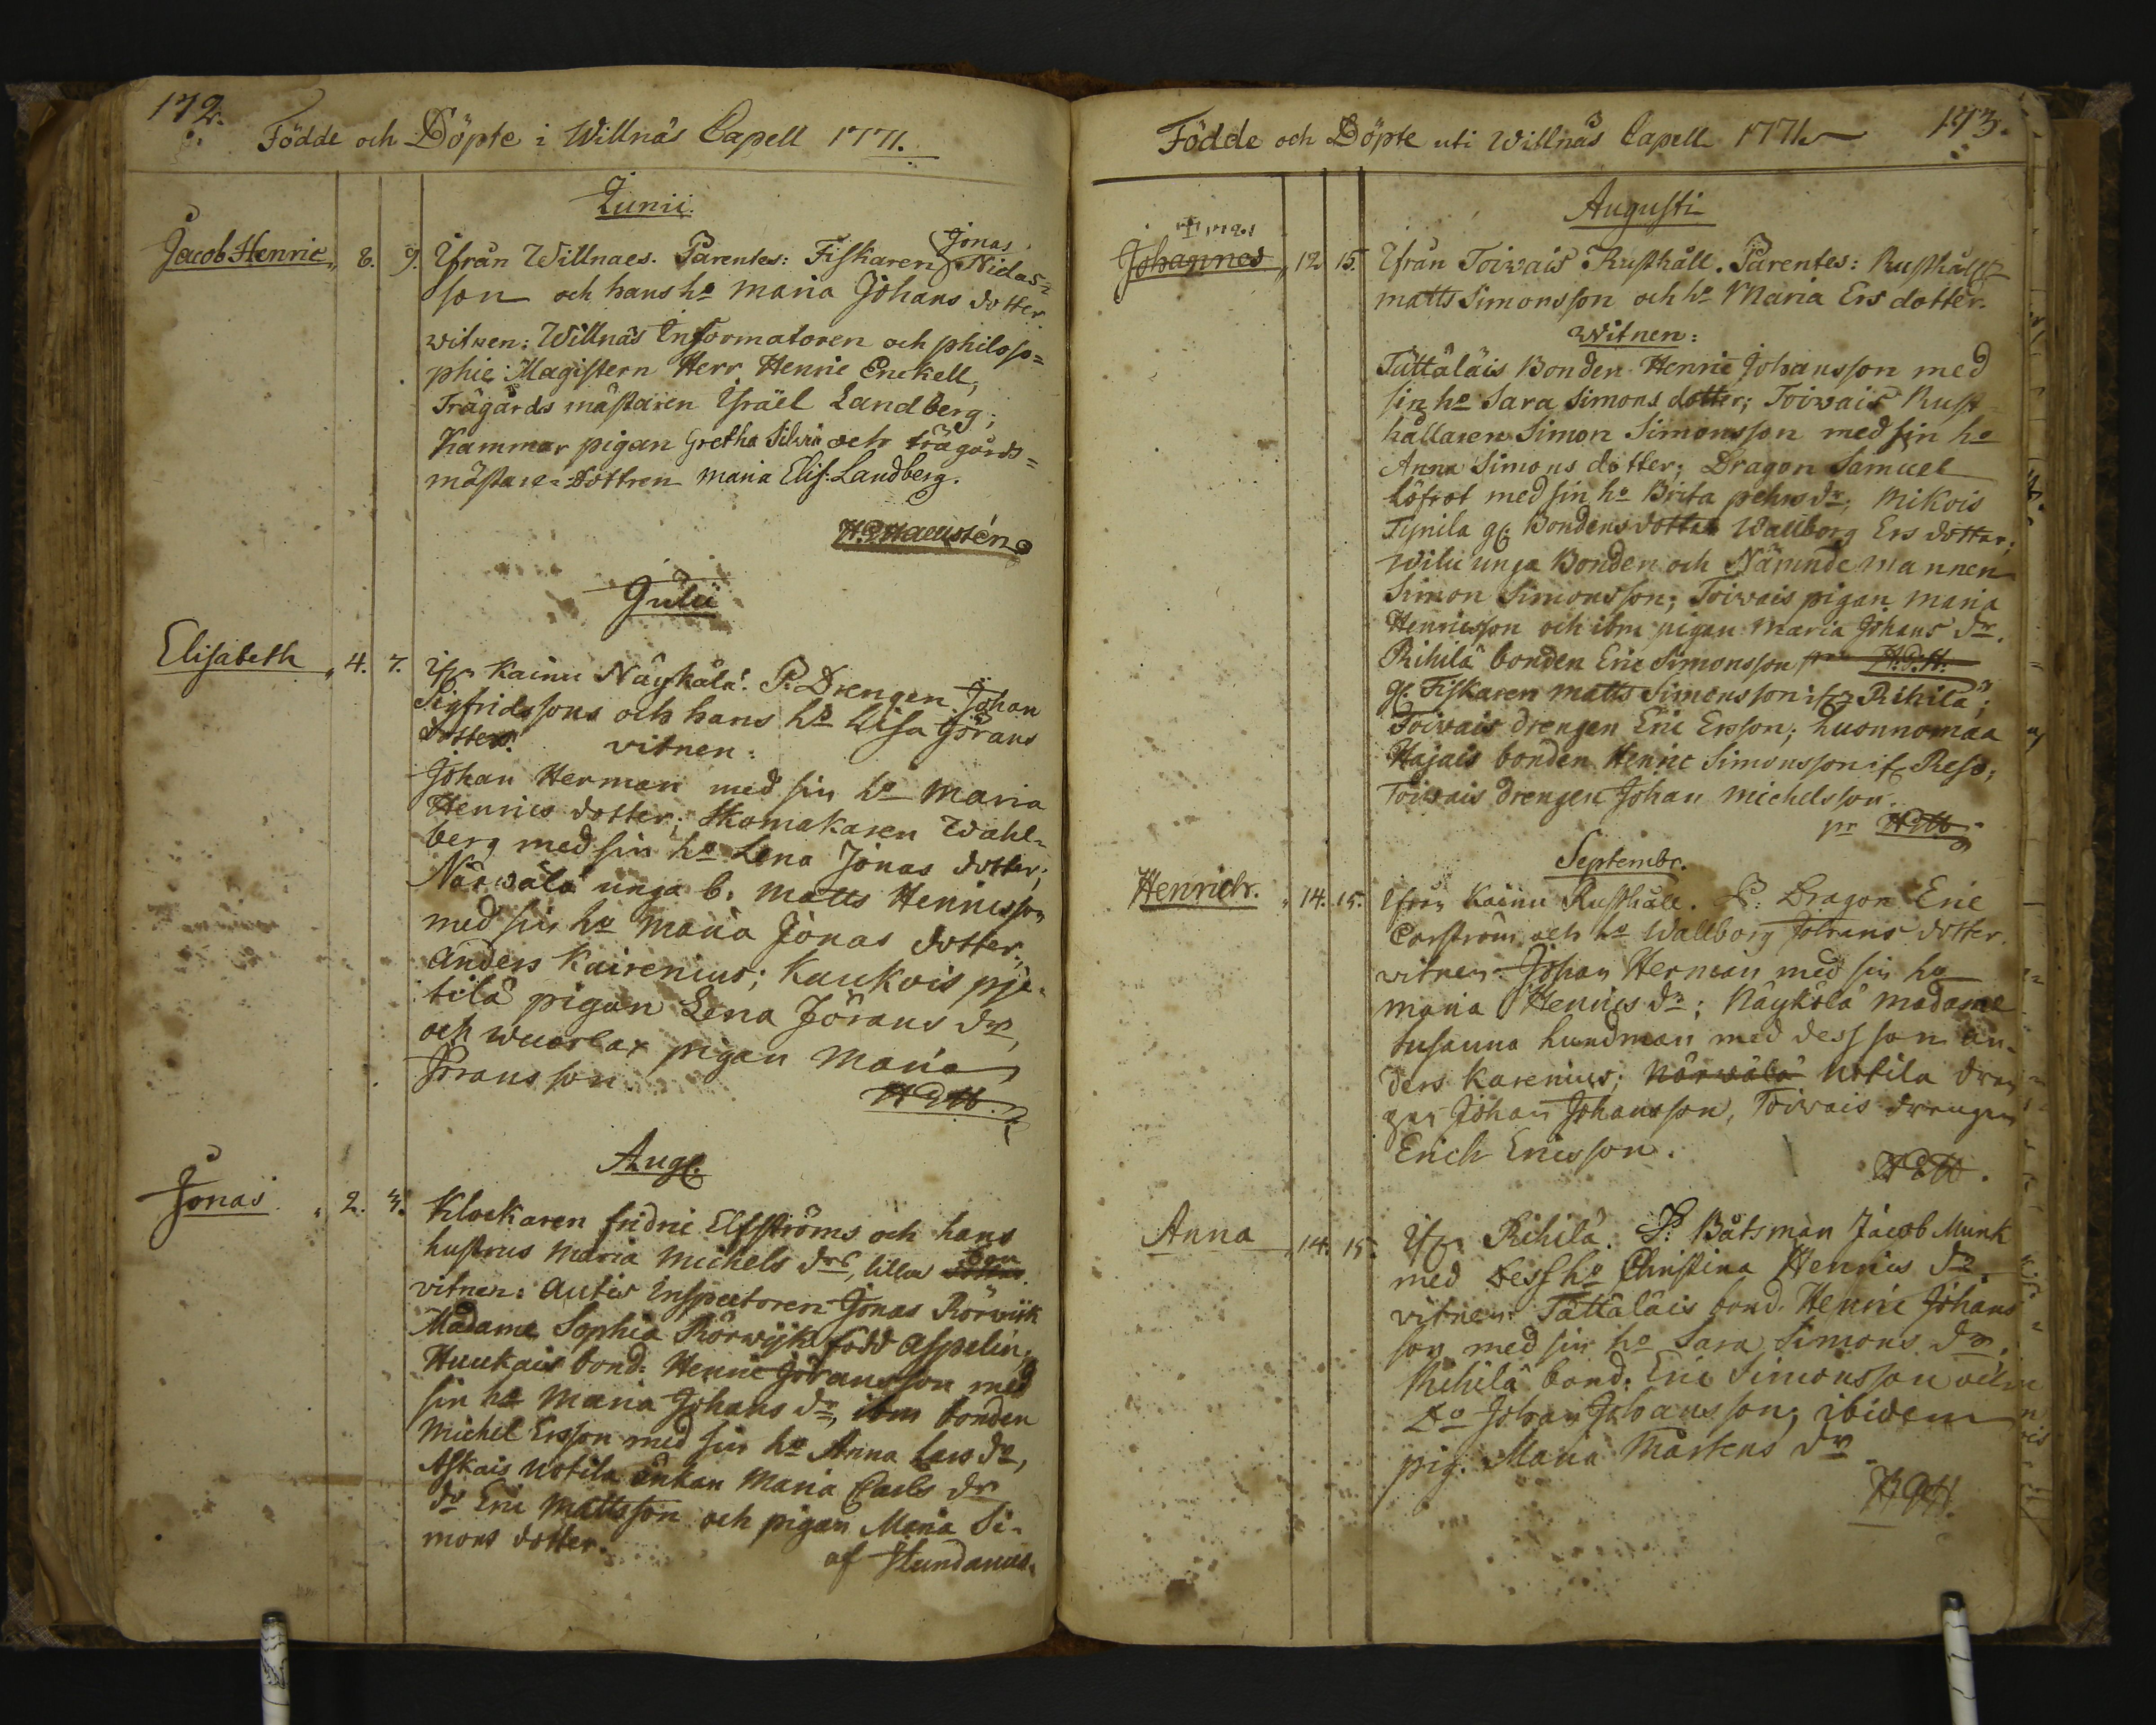 172.
Födde och Döpte i Willnäs Capell 1771.
Junii.
Jacob Henric „ 8. 9. Ifrån Willnaes. Parentes: Fiskaren Jonas Niclas=
son och hans ho Maria Johans dotter.
witnen: Willnäs Informatoren och philoso=
phie Magistern Herr Henric Enckell,
Trägårds mästaren Israël Landberg;
Kammar pigan Gretha Silvin och trägårds=
mästare=Dottren Maria Elis: Landberg.
Julii
Elisabeth „ 4. 7. Kainu Näykälä. P. Drengen Johan
Sigfridssons och hans ho Lisa Jörans
dotter. vitnen:
Johan Herman med sin ho Maria
Henrics dotter; Skomakaren Wahl=
berg med sin ho Lena Jonas dotter;
Närwälä unga b. Matts Henricsson
med sin ho Maria Jonas dotter;
Anders Kairenius; Kaukois pje=
tilä pigan Lena Jörans dr,
och wuorlax pigan Maria
Jöransson.
Aug.
Jonas „ 2. 3. Klockaren fridric Elfströms och hans
hustrus Maria Michels drs, lilla son
vitnen: Autis Inspectoren Jonas Rörwijk
Madame Sophia Rörwijk född Aspelin;
Huukais bond: Henric Jöransson med
sin ho Maria Johans dr, ibm bonden
Michel Ersson med sin ho Anna Lars dr,
Askais Notila änkan Maria Carls dr
do Eric Mattsson och pigan Maria Si=
mons dotter.
af
173.
Födde och Döpte uti Willnäs Capell 1771
Augusti
Johannes „ 12 15. Ifrån Toivais Rusthåll. Parentes:
matts Simonsson och ho Maria Ers dotter.
Witnen:
Tättäläis Bonden Henric Johansson med
sin ho Sara Simons dotter; Toivais Rust
hållaren Simon Simonsson med sin ho
Anna Simons dotter; Dragon Samuel
Löfrot med sin ho Brita pehrs dr; Mikois
Tynila gl. Bondens dotter Wallborg Ers dotter;
unga Bonden och Nämnde mannen
Simon Simonsson; Toivais pigan Maria
Henricsson och ibm pigan Maria Johans dr.
Rihilä bonden Eric Simonsson H.D.H.
gl. Fiskaren Matts Simonsson Rihilä;
Toivais drengen Eric Ersson; Luonnomaa
Hajais bonden Henric Simonsson Reso;
Toivais drengen Johan Michelsson.
Septembr.
Henrich. „ 14. 15. Ifrån Kainu Rusthåll. P: Dragon Eric
och ho Wallborg Johans dotter.
vitnen: Johan Herman med sin ho
Maria Henrics dr; Näykälä Madame
Susanna Lundman med dess son An=
ders Karenius; Närwälä Notila dren
gen Johan Johansson, Toivais drengen
Erich Ericsson.
Anna „ 14. 15. Rihilä. P. Båtsman Jacob Munk
med dess ho Christina Henrics dr.
vitnen: Tättäläis bond. Henric Johans
son med sin ho Sara Simons dr.
Rihilä bond: Eric Simonsson
Do Johan Johansson; ibidem
pig. Maria Mårtens dr